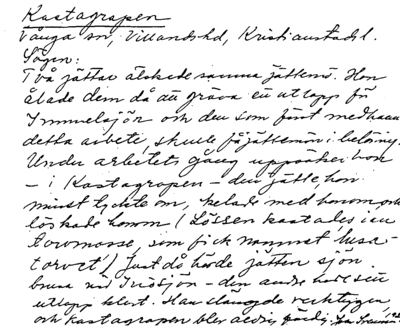 Kastagropen
Vånga sn, Villands hd, Kristianstads l.
Sägen:
Två jättar älskade samma jättemö. Hon
ålade dem då att gräva en utlopp för
Immelnsjön och den som först medhann
detta arbete, skulle få jättemön i belöning.
Under arbetets gång uppsöker hon
– i Kastagropen – den jätte, hon
minst tyckte om, kelade med honom och
löskade honom (Lössen kastades i en
torvmosse, som fick namnet "lusa-
torvet") Just då hörde jätten sjön
brusa vid Ivösjön – den andre hade sin
utlopp klart. Han slängde verktygen
och Kastagropen blev aldrig färdig.